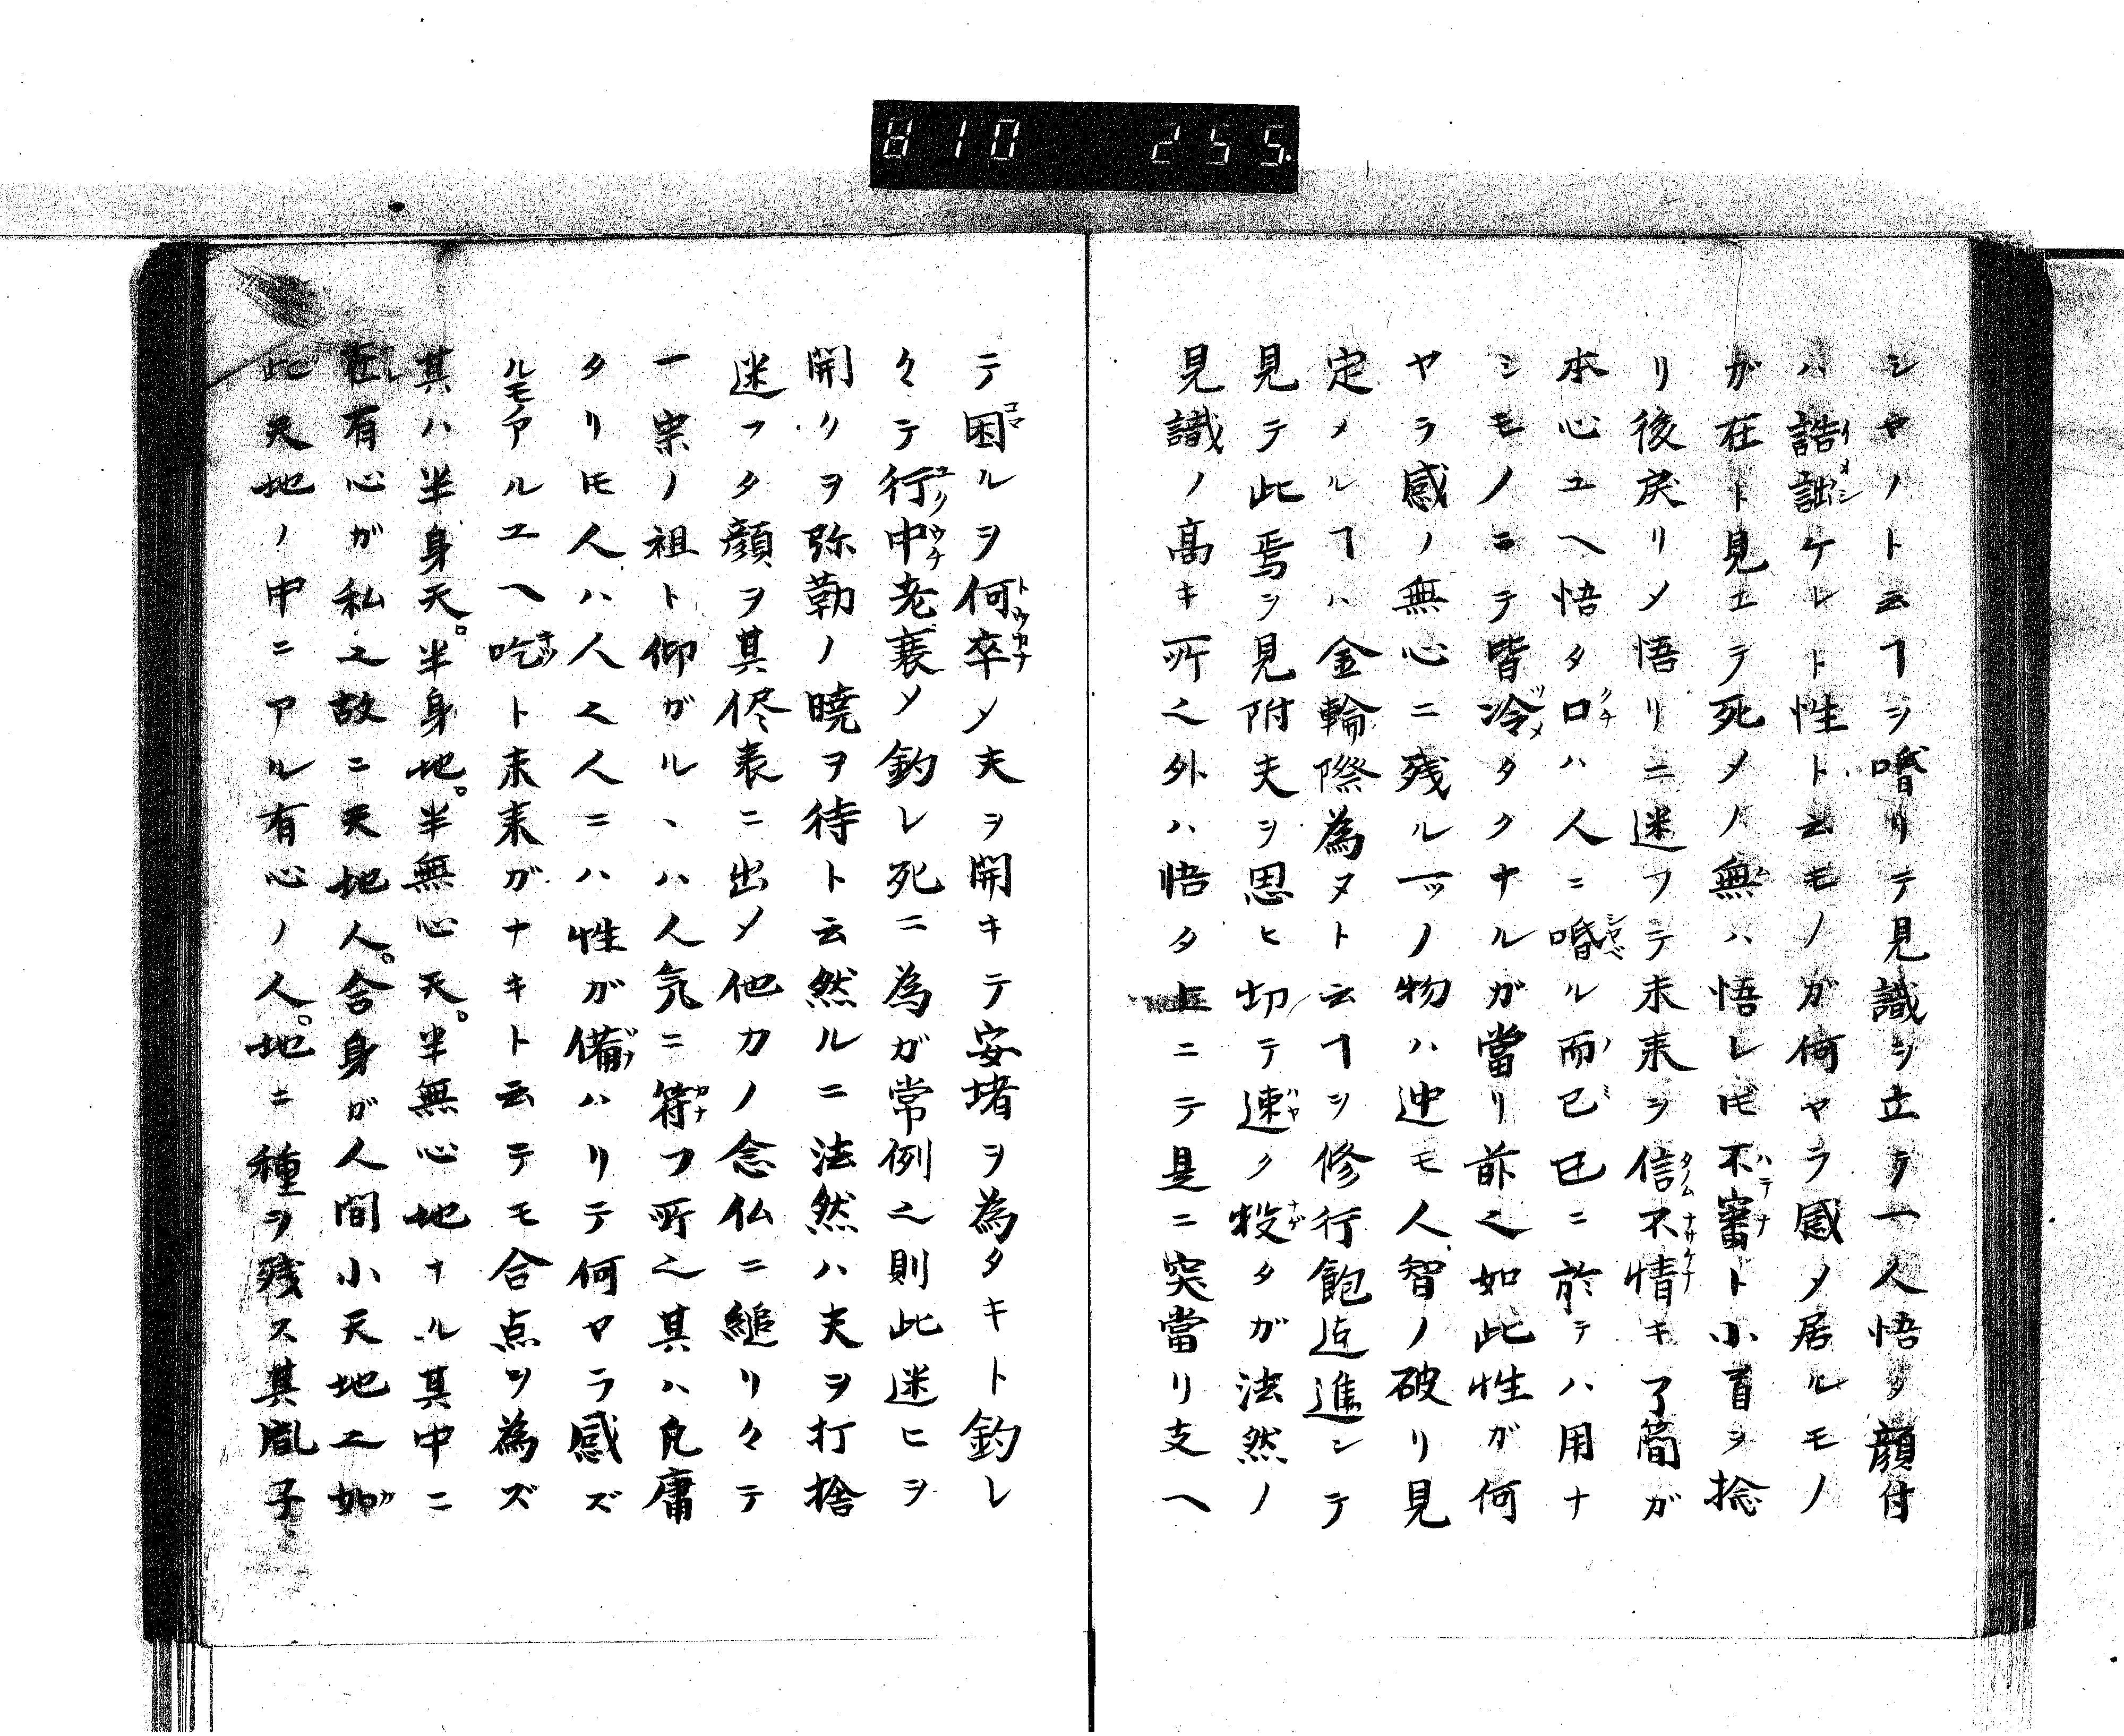 810 255.
シヤノト云ヿヲ噆リテ見識ヲ立テ一人悟タ顔付
ハ誥詘ケレト性ト云モノガ何ヤラ感メ居ルモノ
ガ在ト見エテ死メノ無ハ悟レ𪜈不審ト小首ヲ捻
リ後戻リメ悟リニ迷フテ未来ヲ信不情キ了簡ガ
本心ユヘ悟タ口ハ人ニ噆ル而已已ニ於テハ用ナ
シモノニテ皆冷タクナルガ當リ前之如此性ガ何
ヤラ感ノ無心ニ残ル一ッノ物ハ迚モ人智ノ破リ見
定メルヿハ金輪際為ヌト云ヿヲ修行飽迠進ンテ
見テ此焉ヲ見附夫ヲ思ヒ切テ速ク投タガ法然ノ
見識ノ高キ所之外ハ悟タ上ニテ是ニ突當リ支ヘ
テ困ルヲ何卒メ夫ヲ開キテ安堵ヲ為タキト釣レ
々テ行中老衰メ釣レ死ニ為ガ常例之則此迷ヒヲ
開クヲ弥勒ノ暁ヲ待ト云然ルニ法然ハ夫ヲ打捨
迷フタ顔ヲ其侭表ニ出メ他力ノ念仏ニ縋リ々テ
一宗ノ祖ト仰ガルヽハ人気ニ符フ所之其ハ凡庸
タリ𪜈人ハ人之人ニハ性ガ備ハリテ何ヤラ感ズ
ルモノアルユヘ吃ト未来ガナキト云テモ合点ヲ為ズ
其ハ半身天。半身地。半無心天。半無心地ナル其中ニ
在有心ガ私之故ニ天地人。含身ガ人間小天地之如
此天地ノ中ニアル有心ノ人。地ニ種ヲ残ス其胤子